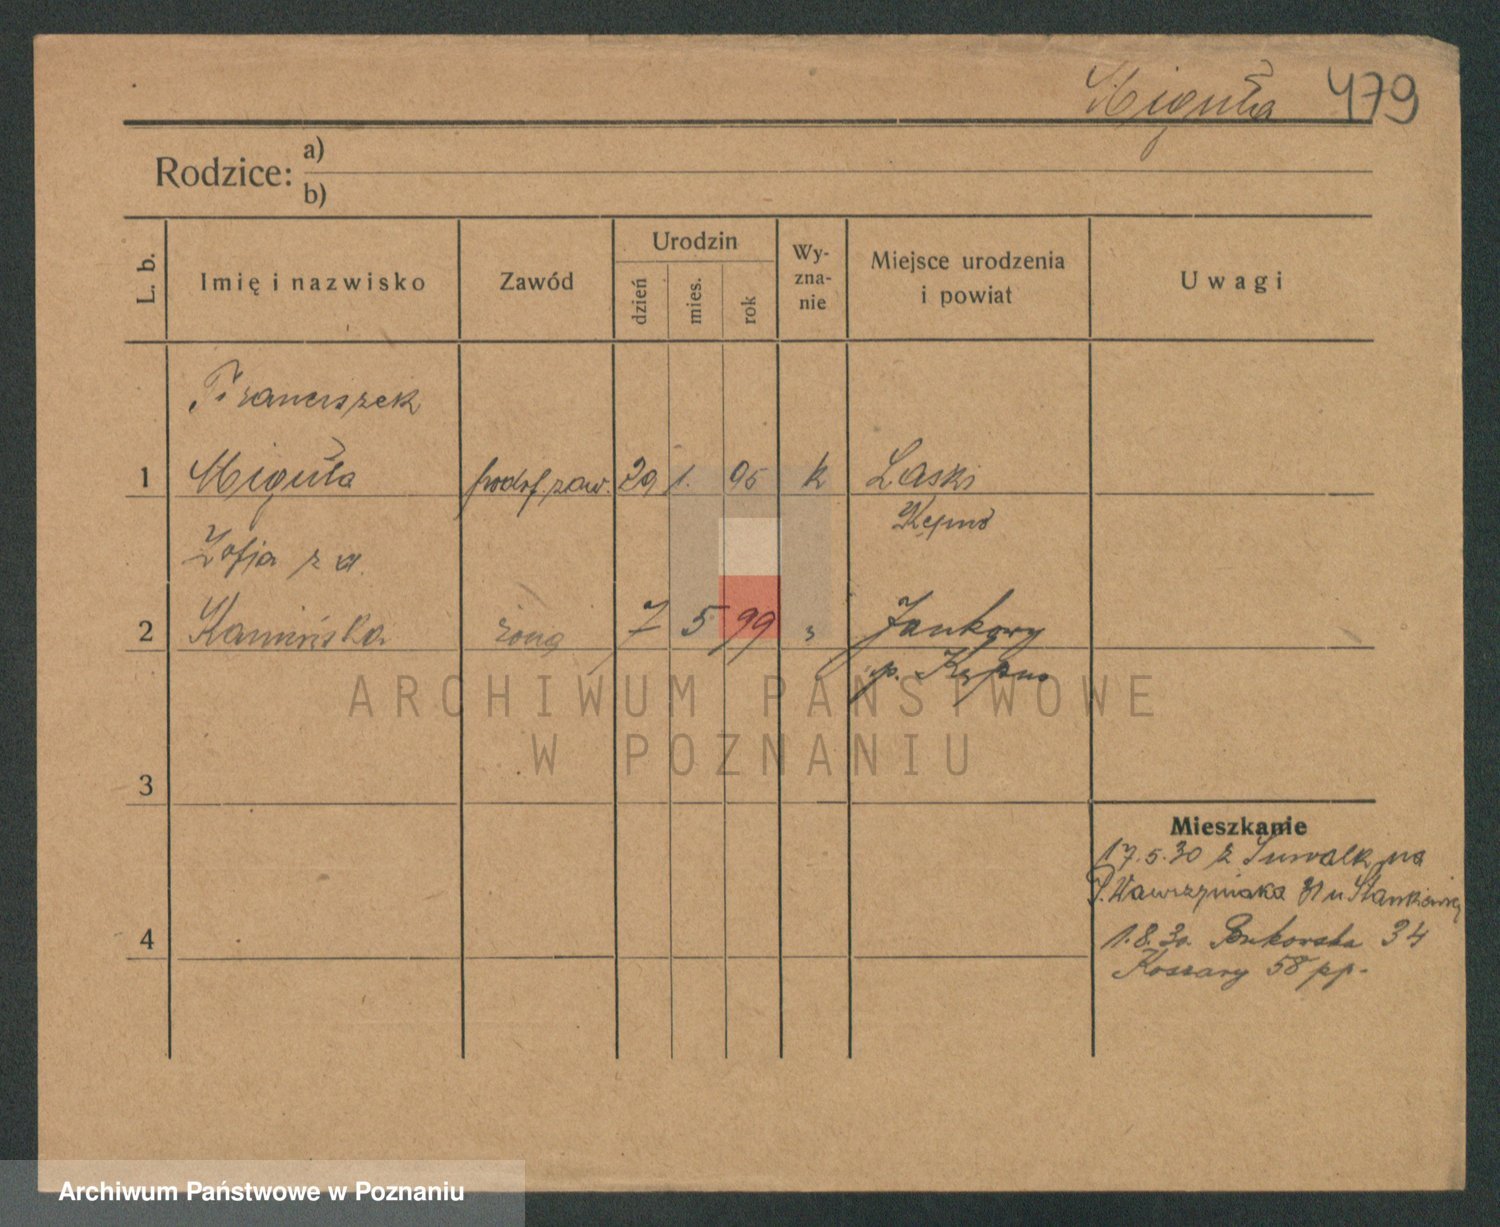 Miguła 479
Rodzice: a)
b)
L. b.
Imię i nazwisko
Zawód
Urodzin
dzień
mies.
rok
Wy-
zna-
nie
Miejsce urodzenia
i powiat
Uwagi
Franciszek
1 Miguła podof. zaw. 29 1. 95 k Laski
Kępno
Zofja z d.
2 Kamińska żona 7 5 99 " Jankowy
p. Kępno
3
4
Mieszkanie
17.5.30 z Suwałk na
P. Wawrzyniaka 31 u
1.8.30. Bukowska 34
Koszary 58 pp.
ARCHIWUM PAŃSTWOWE
W POZNANIU
Archiwum Państwowe w Poznaniu